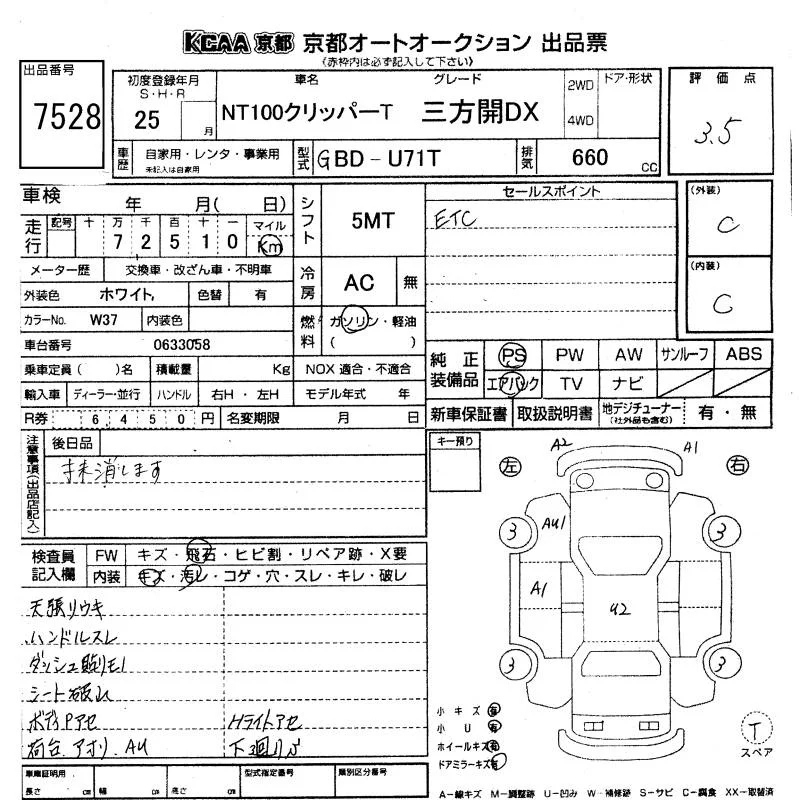 KCAA 京都 京都オートオークション 出品票
(赤枠内は必ず記入して下さい)
出品番号
7528
初度登録年月
S・H・R
25
月
車名
グレード
NT100クリッパーT 三方開DX
2WD
4WD
ドア・形状
評価点
3.5
車歴
自家用・レンタ・事業用
未記入は自家用
型式
GBD-U71T
排気
660 CC
車検 年 月( 日)
シフト
5MT
セールスポイント
ETC
(外装)
C
(内装)
C
走行
記号 十 万 千 百 十 一 マイル
7 2 5 1 0 Km
メーター歴 交換車・改ざん車・不明車
冷房
AC 無
外装色 ホワイト 色替 有
カラーNo. W37 内装色
燃料
ガソリン・軽油
( )
車台番号 0633058
乗車定員( )名 積載量 Kg NOX 適合・不適合
輸入車 ディーラー・並行 ハンドル 右H・左H モデル年式 年
R券 6450円 名変期限 月 日
純正装備品
PS PW AW サンルーフ ABS
エアバック TV ナビ
新車保証書 取扱説明書 地デジチューナー (社外品も含む) 有・無
注意事項(出品店記入)
後日品
抹消します
キー預り
左
右
A2
A1
3
3
AU1
A1
U2
3
3
検査員記入欄
FW キズ・飛石・ヒビ割・リペア跡・X要
内装 キズ・汚レ・コゲ・穴・スレ・キレ・破レ
天張リウキ
ハンドルスレ
ダッシュ貼リモノ
シート破レ
ボディPアセ Hライトアセ
荷台.アオリ.AU 下廻リS
小キズ 有
小U 有
ホイールキズ 有
ドアミラーキズ 有
T
スペア
車庫証明用
長さ cm 幅 cm 高さ cm
型式指定番号
類別区分番号
A-線キズ M-調整跡 U-凹み W-補修跡 S-サビ C-腐食 XX-取替済